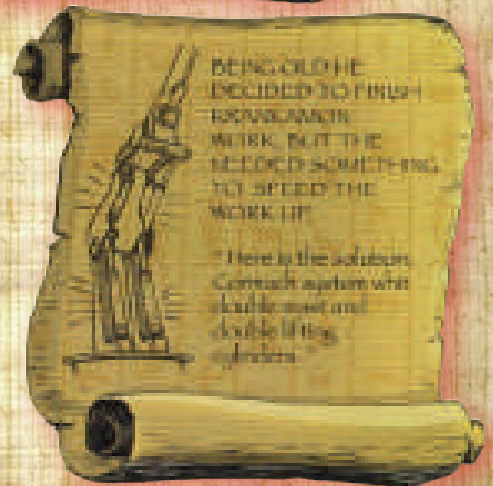 BEING OLD HE
DECIDED TO FINISH
WORK, BUT THE
NEEDED SOMETHING
TO SPEED THE
WORK UP
"Here is the solution.
a system whit
double mast and
double lifting
cylinders."